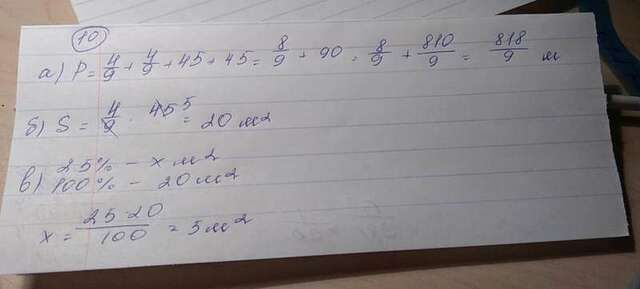 10
а) P = 4/9 + 4/9 + 45 + 45 = 8/9 + 90 = 8/9 + 810/9 = 818/9 м
б) S = 4/9 · 45 5 = 20 м2
в) 25% – x м2
100% – 20 м2
x = 25·20/100 = 5 м2